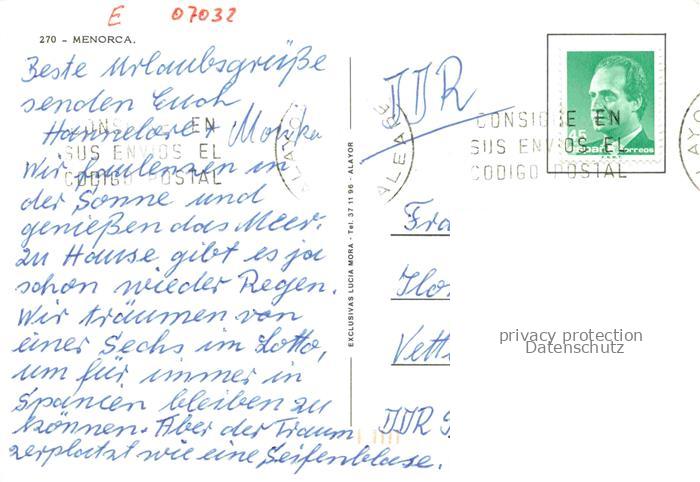 E 07032
270 - MENORCA.
Beste Urlaubsgrüße
senden Euch
Hannelore + Monika
Wir faulenzen in
der Sonne und
genießen das Meer.
Zu Hause gibt es ja
schon wieder Regen.
Wir träumen von
einer Sechs im Lotto,
um für immer in
Spanien bleiben zu
können. Aber der Traum
zerplatzt wie eine Seifenblase.
EXCLUSIVAS LUCIA MORA - Tel. 37 11 96 - ALAYOR
CONSIGNE EN
SUS ENVIOS EL
CODIGO POSTAL
ALAYO
BALEARE
DDR
CONSIGNE EN
SUS ENVIOS EL
CODIGO POSTAL
45
España correos
ALAYO
Fra
Flo
Vett
DDR 9
privacy protection
Datenschutz